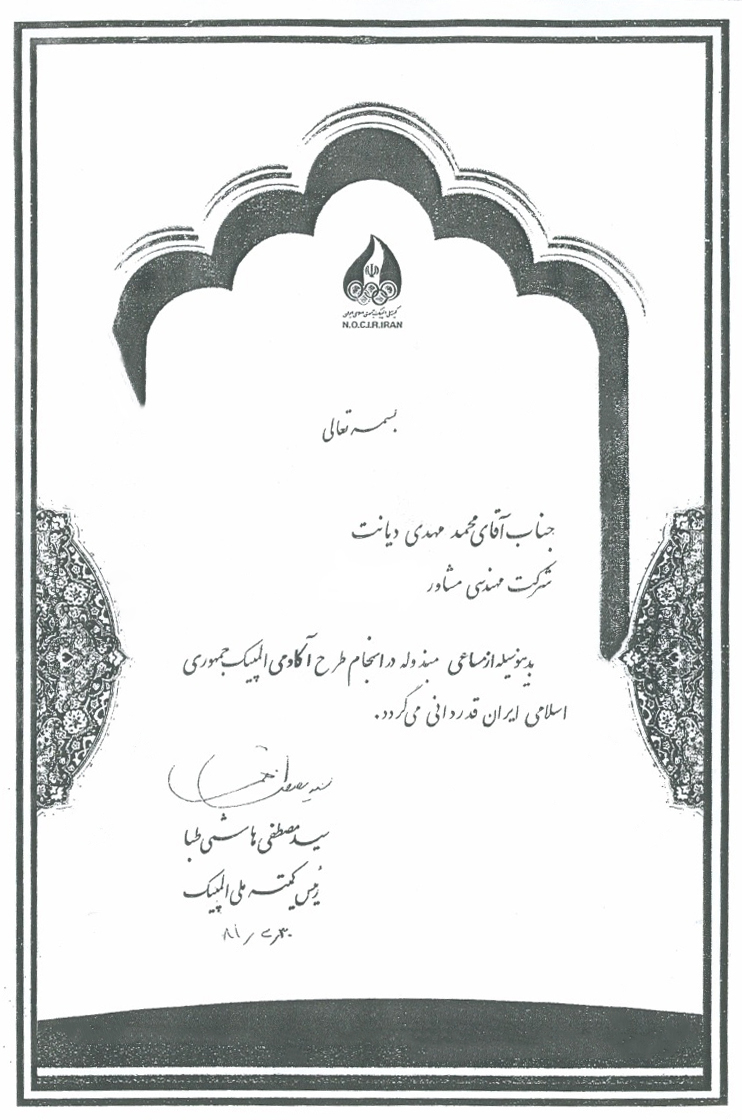 کمیته ملی المپیک جمهوری اسلامی ایران
N.O.C.I.R.IRAN
بسمه تعالی
جناب آقای محمد مهدی دیانت
شرکت مهندسی مشاور
بدینوسیله از مساعی مبذوله در انجام طرح آکادمی المپیک جمهوری
اسلامی ایران قدردانی می‌گردد.
سید مصطفی هاشمی طبا
رئیس کمیته ملی المپیک